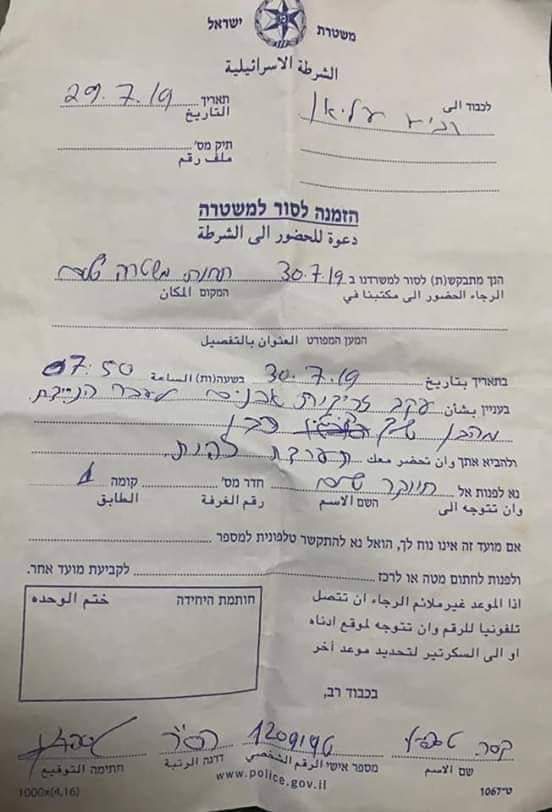 משטרת ישראל
الشرطة الاسرائيلية
לכבוד الى
תאריך 29.7.19
التاريخ
תיק מס'
ملف رقم
הזמנה לסור למשטרה
دعوة للحضور الى الشرطة
הנך מתבקש(ת) לסור למשרדנו ב 30.7.19 תחנת משטרה
الرجاء الحضور الى مكتبنا في המקום المكان
המען המפורט العنوان بالتفصيل
בתאריך بتاريخ 30.7.19 בשעה(ות) الساعة 07:50
בעניין بشأن עקב זריקות אבנים לעבר הניידת
ולהביא אתך وان تحضر معك תעודת זהות
נא לפנות אל חדר מס' קומה 1
وان تتوجه الى השם الاسم رقم الغرفة الطابق
אם מועד זה אינו נוח לך, הואל נא להתקשר טלפונית למספר
ולפנות לחתום מטה או לרכז לקביעת מועד אחר.
اذا الموعد غير ملائم الرجاء ان تتصل
تلفونيا للرقم وان تتوجه لموقع ادناه
او الى السكرتير لتحديد موعد آخر
חותמת היחידה ختم الوحده
בכבוד רב,
1209196 רס"ר
שם الاسم מספר אישי الرقم الشخصي דרגה الرتبة חתימה التوقيع
www.police.gov.il
1000x(4,16)
ט"1067